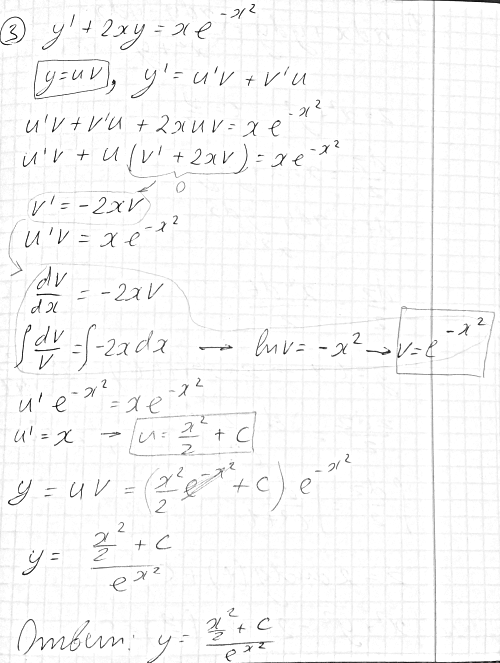 ③ y' + 2xy = xe^{-x²}
y = uv, y' = u'v + v'u
u'v + v'u + 2xuv = xe^{-x²}
u'v + u(v' + 2xv) = xe^{-x²}
0
v' = -2xv
u'v = xe^{-x²}
dv/dx = -2xv
∫ dv/v = ∫ -2xdx → lnv = -x² → v = e^{-x²}
u' e^{-x²} = xe^{-x²}
u' = x → u = x²/2 + C
y = uv = (x²/2 + C) e^{-x²}
y = (x²/2 + C)/e^{x²}
Ответ: y = (x²/2 + C)/e^{x²}